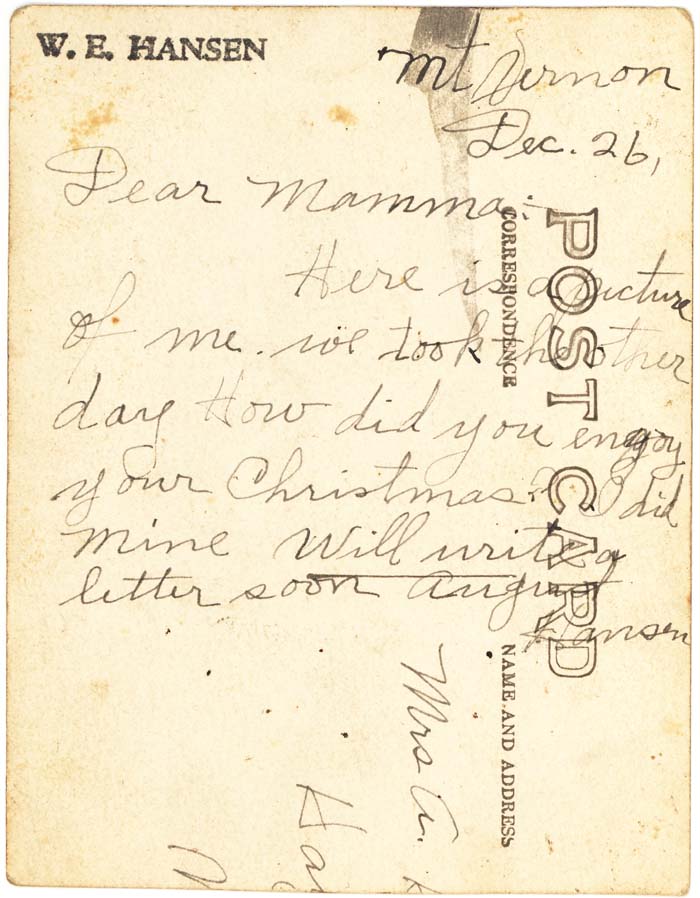 W. E. HANSEN
Mt Vernon
Dec. 26,
Dear Mamma:
Here is a picture
of me. we took the other
day How did you enjoy
your Christmas? I did
mine Will write a
letter soon August
Hansen
POST CARD
CORRESPONDENCE
NAME AND ADDRESS
Mrs A.